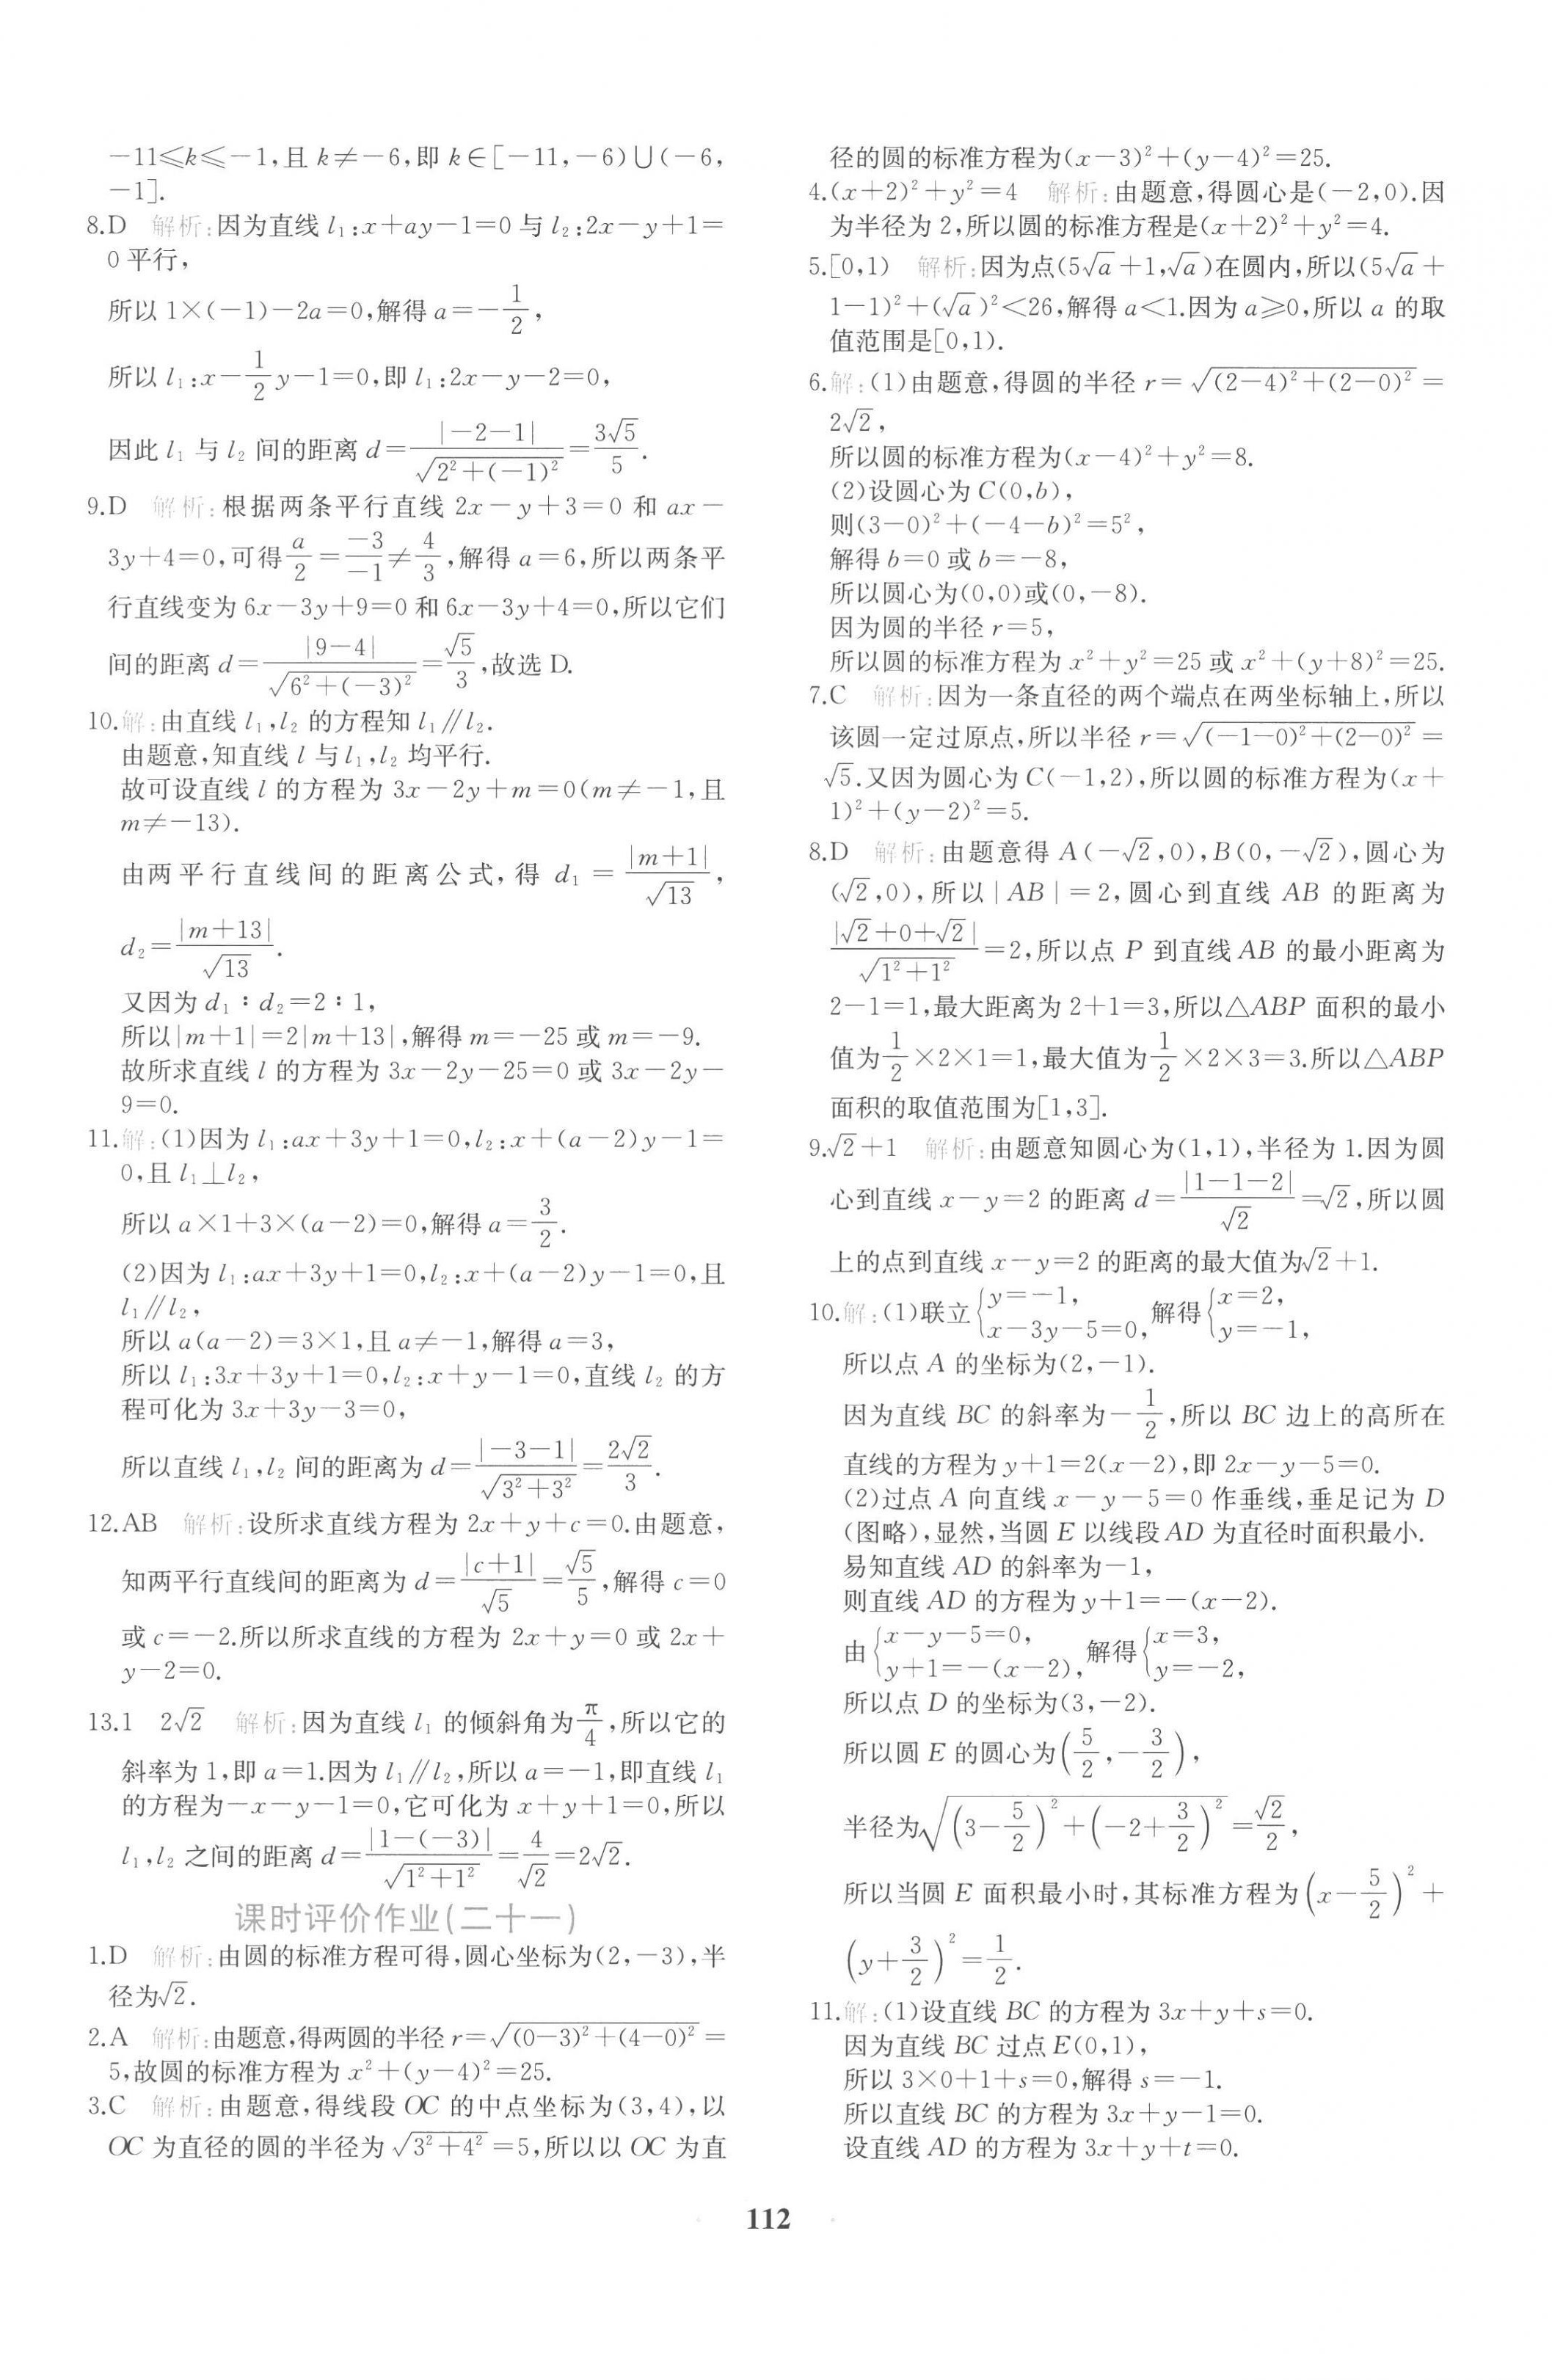 -11≤k≤-1,且 k≠-6,即 k∈[-11,-6)∪(-6,
-1].
8.D 解析:因为直线 l₁:x+ay-1=0 与 l₂:2x-y+1=
0 平行,
所以 1×(-1)-2a=0,解得 a=-1/2,
所以 l₁:x-1/2y-1=0,即 l₁:2x-y-2=0,
因此 l₁ 与 l₂ 间的距离 d=|-2-1|/√(2²+(-1)²)=3√5/5.
9.D 解析:根据两条平行直线 2x-y+3=0 和 ax-
3y+4=0,可得 a/2=-3/-1≠4/3,解得 a=6,所以两条平
行直线变为 6x-3y+9=0 和 6x-3y+4=0,所以它们
间的距离 d=|9-4|/√(6²+(-3)²)=√5/3,故选 D.
10.解:由直线 l₁,l₂ 的方程知 l₁∥l₂.
由题意,知直线 l 与 l₁,l₂ 均平行.
故可设直线 l 的方程为 3x-2y+m=0(m≠-1,且
m≠-13).
由两平行直线间的距离公式,得 d₁=|m+1|/√13,
d₂=|m+13|/√13.
又因为 d₁∶d₂=2∶1,
所以|m+1|=2|m+13|,解得 m=-25 或 m=-9.
故所求直线 l 的方程为 3x-2y-25=0 或 3x-2y-
9=0.
11.解:(1)因为 l₁:ax+3y+1=0,l₂:x+(a-2)y-1=
0,且 l₁⊥l₂,
所以 a×1+3×(a-2)=0,解得 a=3/2.
(2)因为 l₁:ax+3y+1=0,l₂:x+(a-2)y-1=0,且
l₁∥l₂,
所以 a(a-2)=3×1,且 a≠-1,解得 a=3,
所以 l₁:3x+3y+1=0,l₂:x+y-1=0,直线 l₂ 的方
程可化为 3x+3y-3=0,
所以直线 l₁,l₂ 间的距离为 d=|-3-1|/√(3²+3²)=2√2/3.
12.AB 解析:设所求直线方程为 2x+y+c=0.由题意,
知两平行直线间的距离为 d=|c+1|/√5=√5/5,解得 c=0
或 c=-2.所以所求直线的方程为 2x+y=0 或 2x+
y-2=0.
13.1 2√2 解析:因为直线 l₁ 的倾斜角为π/4,所以它的
斜率为 1,即 a=1.因为 l₁∥l₂,所以 a=-1,即直线 l₁
的方程为-x-y-1=0,它可化为 x+y+1=0,所以
l₁,l₂ 之间的距离 d=|1-(-3)|/√(1²+1²)=4/√2=2√2.
课时评价作业(二十一)
1.D 解析:由圆的标准方程可得,圆心坐标为(2,-3),半
径为√2.
2.A 解析:由题意,得两圆的半径 r=√((0-3)²+(4-0)²)=
5,故圆的标准方程为 x²+(y-4)²=25.
3.C 解析:由题意,得线段 OC 的中点坐标为(3,4),以
OC 为直径的圆的半径为 √(3²+4²)=5,所以以 OC 为直
径的圆的标准方程为(x-3)²+(y-4)²=25.
4.(x+2)²+y²=4 解析:由题意,得圆心是(-2,0).因
为半径为 2,所以圆的标准方程是(x+2)²+y²=4.
5.[0,1) 解析:因为点(5√a+1,√a)在圆内,所以(5√a+
1-1)²+(√a)²<26,解得 a<1.因为 a≥0,所以 a 的取
值范围是[0,1).
6.解:(1)由题意,得圆的半径 r=√((2-4)²+(2-0)²)=
2√2,
所以圆的标准方程为(x-4)²+y²=8.
(2)设圆心为 C(0,b),
则(3-0)²+(-4-b)²=5²,
解得 b=0 或 b=-8,
所以圆心为(0,0)或(0,-8).
因为圆的半径 r=5,
所以圆的标准方程为 x²+y²=25 或 x²+(y+8)²=25.
7.C 解析:因为一条直径的两个端点在两坐标轴上,所以
该圆一定过原点,所以半径 r=√((-1-0)²+(2-0)²)=
√5.又因为圆心为 C(-1,2),所以圆的标准方程为(x+
1)²+(y-2)²=5.
8.D 解析:由题意得 A(-√2,0),B(0,-√2),圆心为
(√2,0),所以|AB|=2,圆心到直线 AB 的距离为
|√2+0+√2|/√(1²+1²)=2,所以点 P 到直线 AB 的最小距离为
2-1=1,最大距离为 2+1=3,所以△ABP 面积的最小
值为1/2×2×1=1,最大值为1/2×2×3=3.所以△ABP
面积的取值范围为[1,3].
9.√2+1 解析:由题意知圆心为(1,1),半径为 1.因为圆
心到直线 x-y=2 的距离 d=|1-1-2|/√2=√2,所以圆
上的点到直线 x-y=2 的距离的最大值为√2+1.
10.解:(1)联立{y=-1, x-3y-5=0,解得{x=2, y=-1,
所以点 A 的坐标为(2,-1).
因为直线 BC 的斜率为-1/2,所以 BC 边上的高所在
直线的方程为 y+1=2(x-2),即 2x-y-5=0.
(2)过点 A 向直线 x-y-5=0 作垂线,垂足记为 D
(图略),显然,当圆 E 以线段 AD 为直径时面积最小.
易知直线 AD 的斜率为-1,
则直线 AD 的方程为 y+1=-(x-2).
由{x-y-5=0, y+1=-(x-2),解得{x=3, y=-2,
所以点 D 的坐标为(3,-2).
所以圆 E 的圆心为(5/2,-3/2),
半径为√((3-5/2)²+(-2+3/2)²)=√2/2,
所以当圆 E 面积最小时,其标准方程为(x-5/2)²+
(y+3/2)²=1/2.
11.解:(1)设直线 BC 的方程为 3x+y+s=0.
因为直线 BC 过点 E(0,1),
所以 3×0+1+s=0,解得 s=-1.
所以直线 BC 的方程为 3x+y-1=0.
设直线 AD 的方程为 3x+y+t=0.
112